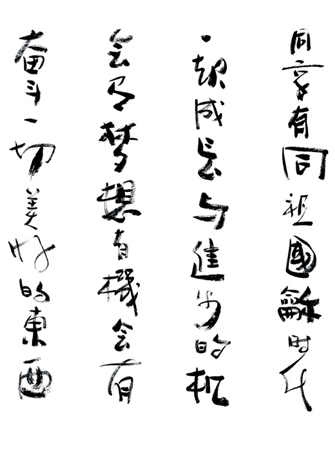 同享有同祖國龢时代
一起成长与進步的机
会有夢想有機会有
奮斗一切美好的東西